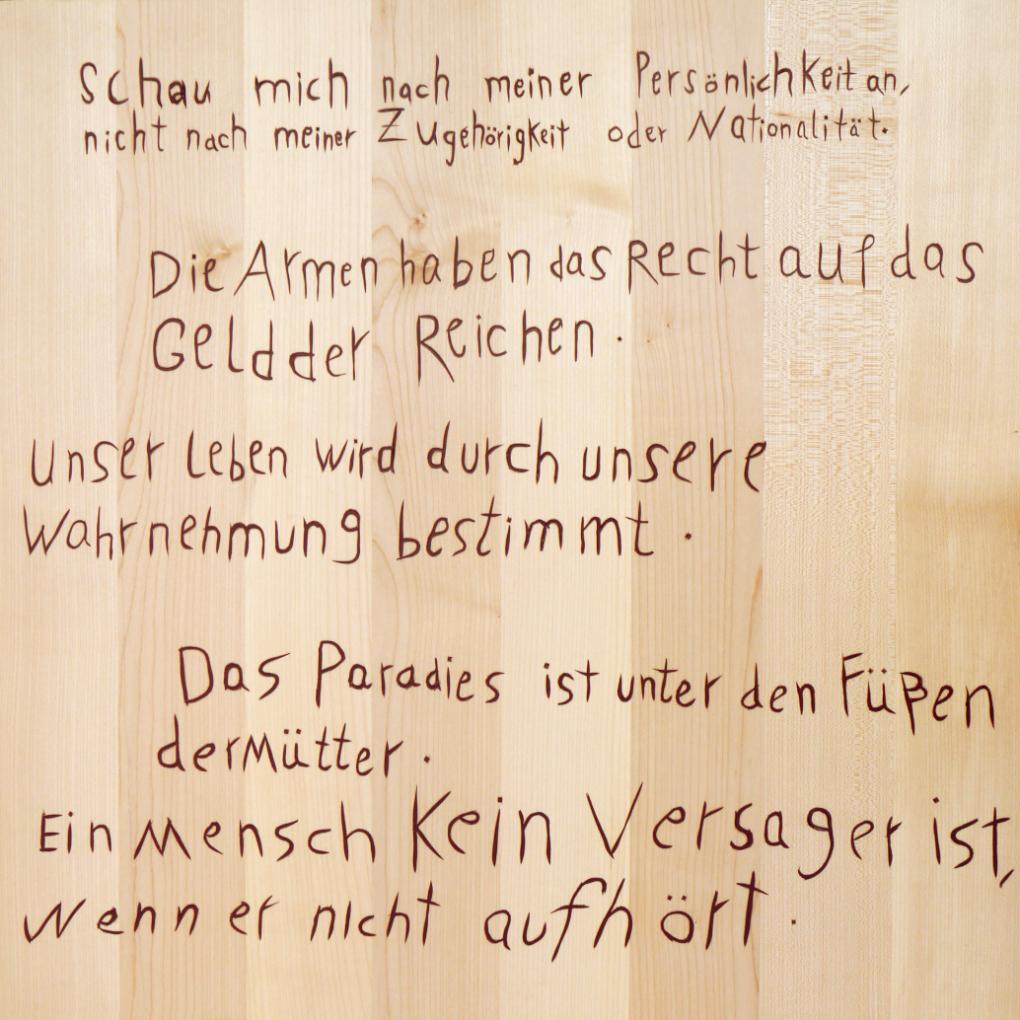 Schau mich nach meiner Persönlichkeit an,
nicht nach meiner Zugehörigkeit oder Nationalität.
Die Armen haben das Recht auf das
Geld der Reichen.
Unser Leben wird durch unsere
Wahrnehmung bestimmt.
Das Paradies ist unter den Füßen
der Mütter.
Ein Mensch Kein Versager ist,
wenn er nicht aufhört.